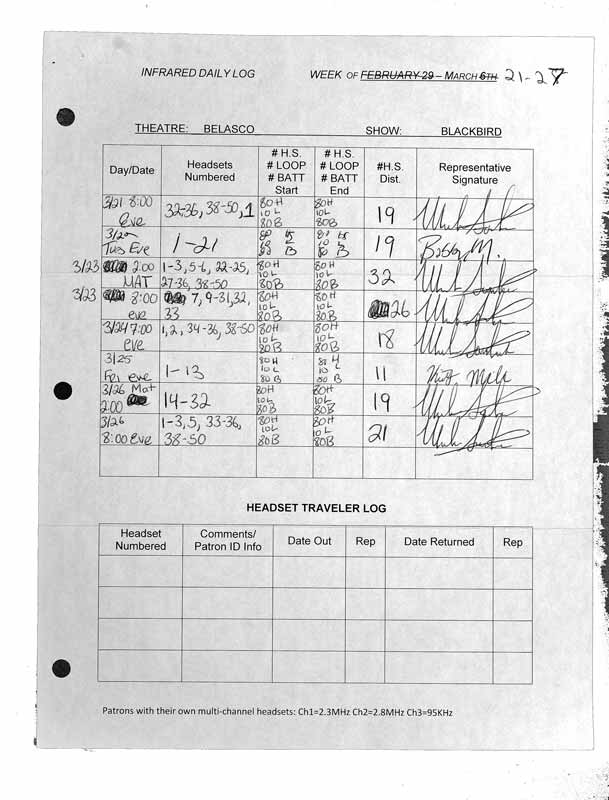 INFRARED DAILY LOG WEEK OF FEBRUARY 29 – MARCH 6TH 21-27
THEATRE: BELASCO SHOW: BLACKBIRD
Day/Date Headsets Numbered # H.S. # LOOP # BATT Start # H.S. # LOOP # BATT End #H.S. Dist. Representative Signature
3/21 8:00 Eve 32-36, 38-50, 1 80H 10L 80B 80H 10L 80B 19
Tues Eve 1-21 19 Bobby M.
3/23 2:00 MAT 1-3, 5-6, 22-25, 27-36, 38-50 80H 10L 80B 80H 10L 80B 32
3/23 8:00 eve 7, 9-31, 32, 33 80H 10L 80B 80H 10L 80B 26
3/24 7:00 eve 1, 2, 34-36, 38-50 80H 10L 80B 80H 10L 80B 18
3/25 Fri eve 1-13 80H 10L 80B 80H 10L 80B 11
3/26 Mat 2:00 14-32 80H 10L 80B 80H 10L 80B 19
3/26 8:00 Eve 1-3, 5, 33-36, 38-50 80H 10L 80B 80H 10L 80B 21
HEADSET TRAVELER LOG
Headset Numbered Comments/ Patron ID Info Date Out Rep Date Returned Rep
Patrons with their own multi-channel headsets: Ch1=2.3MHz Ch2=2.8MHz Ch3=95KHz